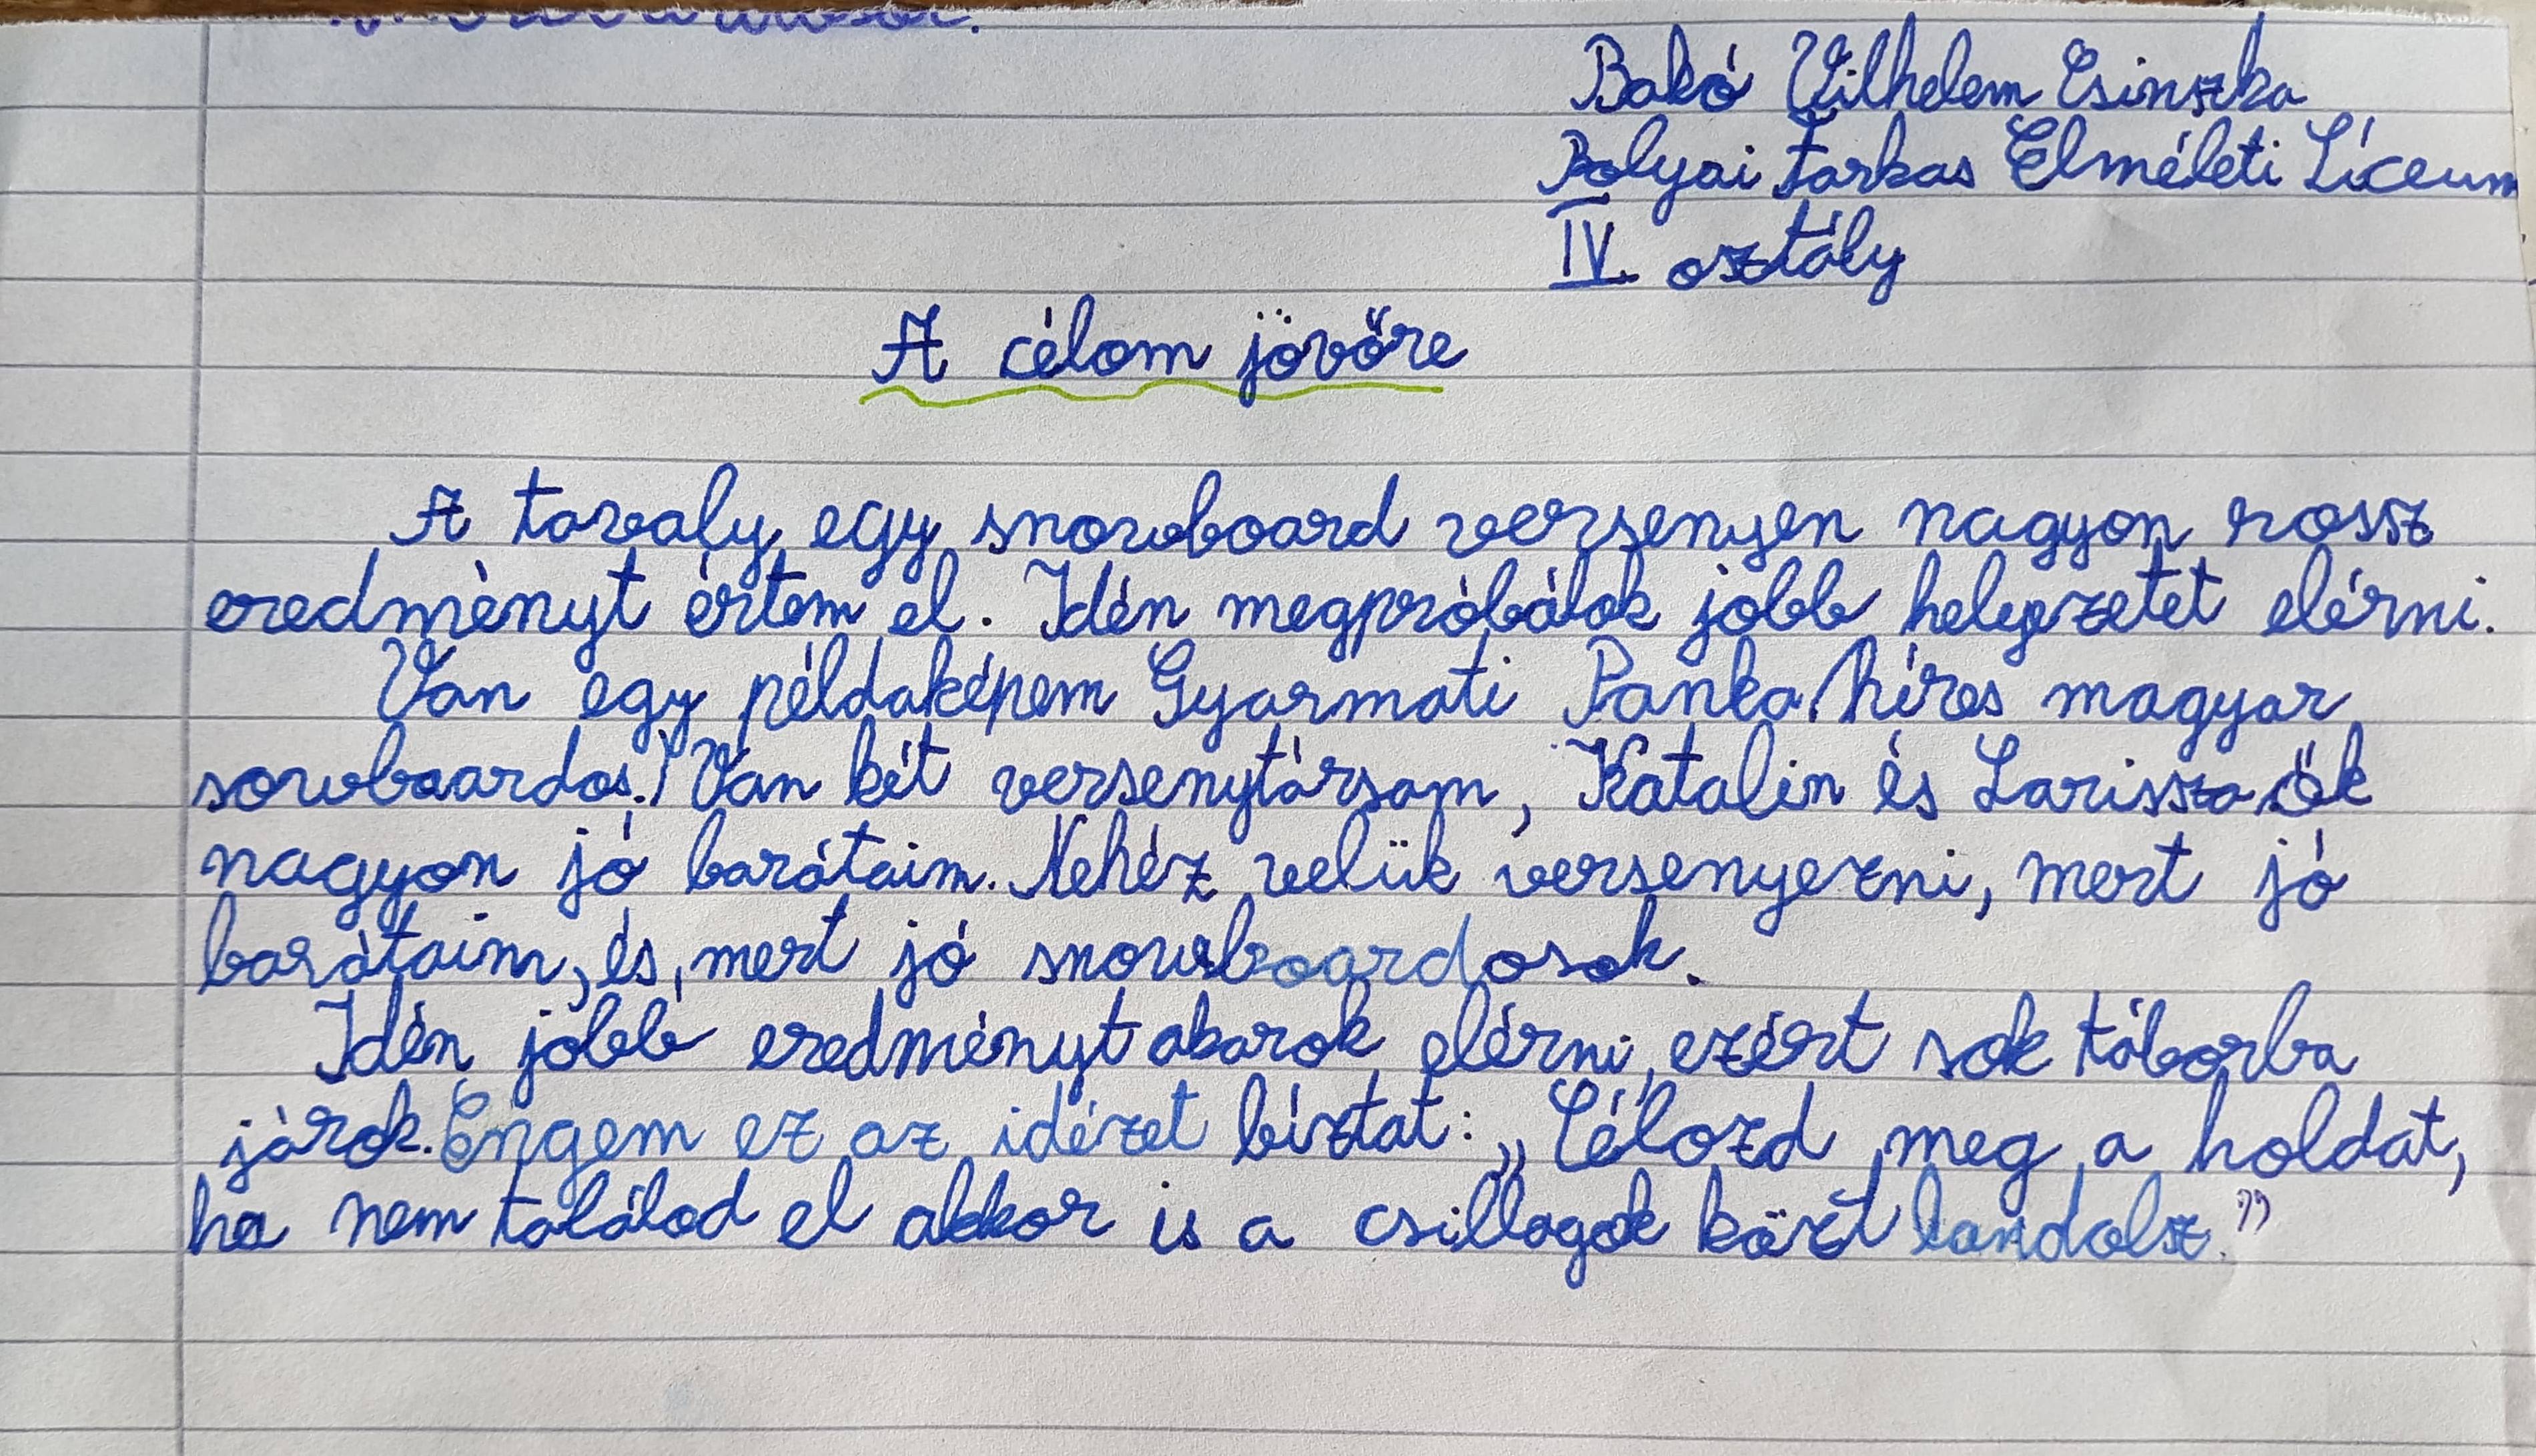 Bakó Vilhelem Csinszka
Bolyai Farkas Elméleti Líceum
IV. osztály
A célom jövőre
A tavaly egy snowboard versenyen nagyon rossz
eredményt értem el. Idén megpróbálok jobb helyezetet elérni.
Van egy példaképem Gyarmati Panka (híres magyar
sowboardos.) Van két versenytársam, Katalin és Larissza ők
nagyon jó barátaim. Nehéz velük versenyezni, mert jó
barátaim, és, mert jó snowboardosok.
Idén jobb eredményt akarok elérni, ezért sok táborba
járok. Engem ez az idézet bíztat: „Célozd meg a holdat,
ha nem találod el akkor is a csillagok közt landolsz.”